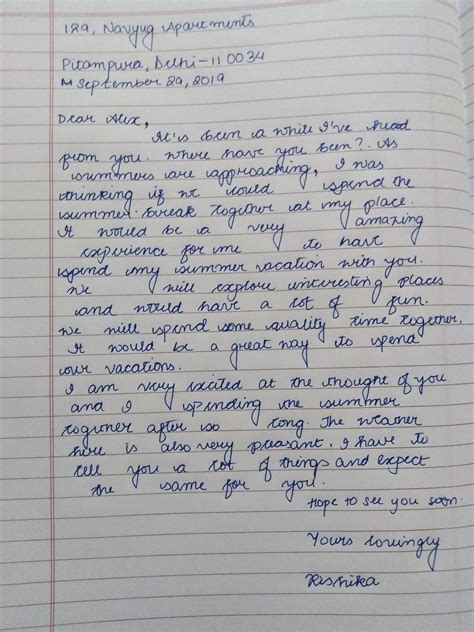 129, Navyug Apartments
Pitampura, Delhi-110034
September 29, 2019
Dear Alex,
It's been a while I've head
from you. Where have you been?. As
summers are approaching, I was
thinking if we could spend the
summer break together at my place.
It would be a very amazing
experience for me to have
spend my summer vacation with you.
We will explore interesting places
and would have a lot of fun.
We will spend some quality time together.
It would be a great way to spend
our vacations.
I am very excited at the thought of you
and I spending the summer
together after so long. The weather
here is also very pleasant. I have to
tell you a lot of things and expect
the same for you.
Hope to see you soon.
Yours lovingly
Rishika